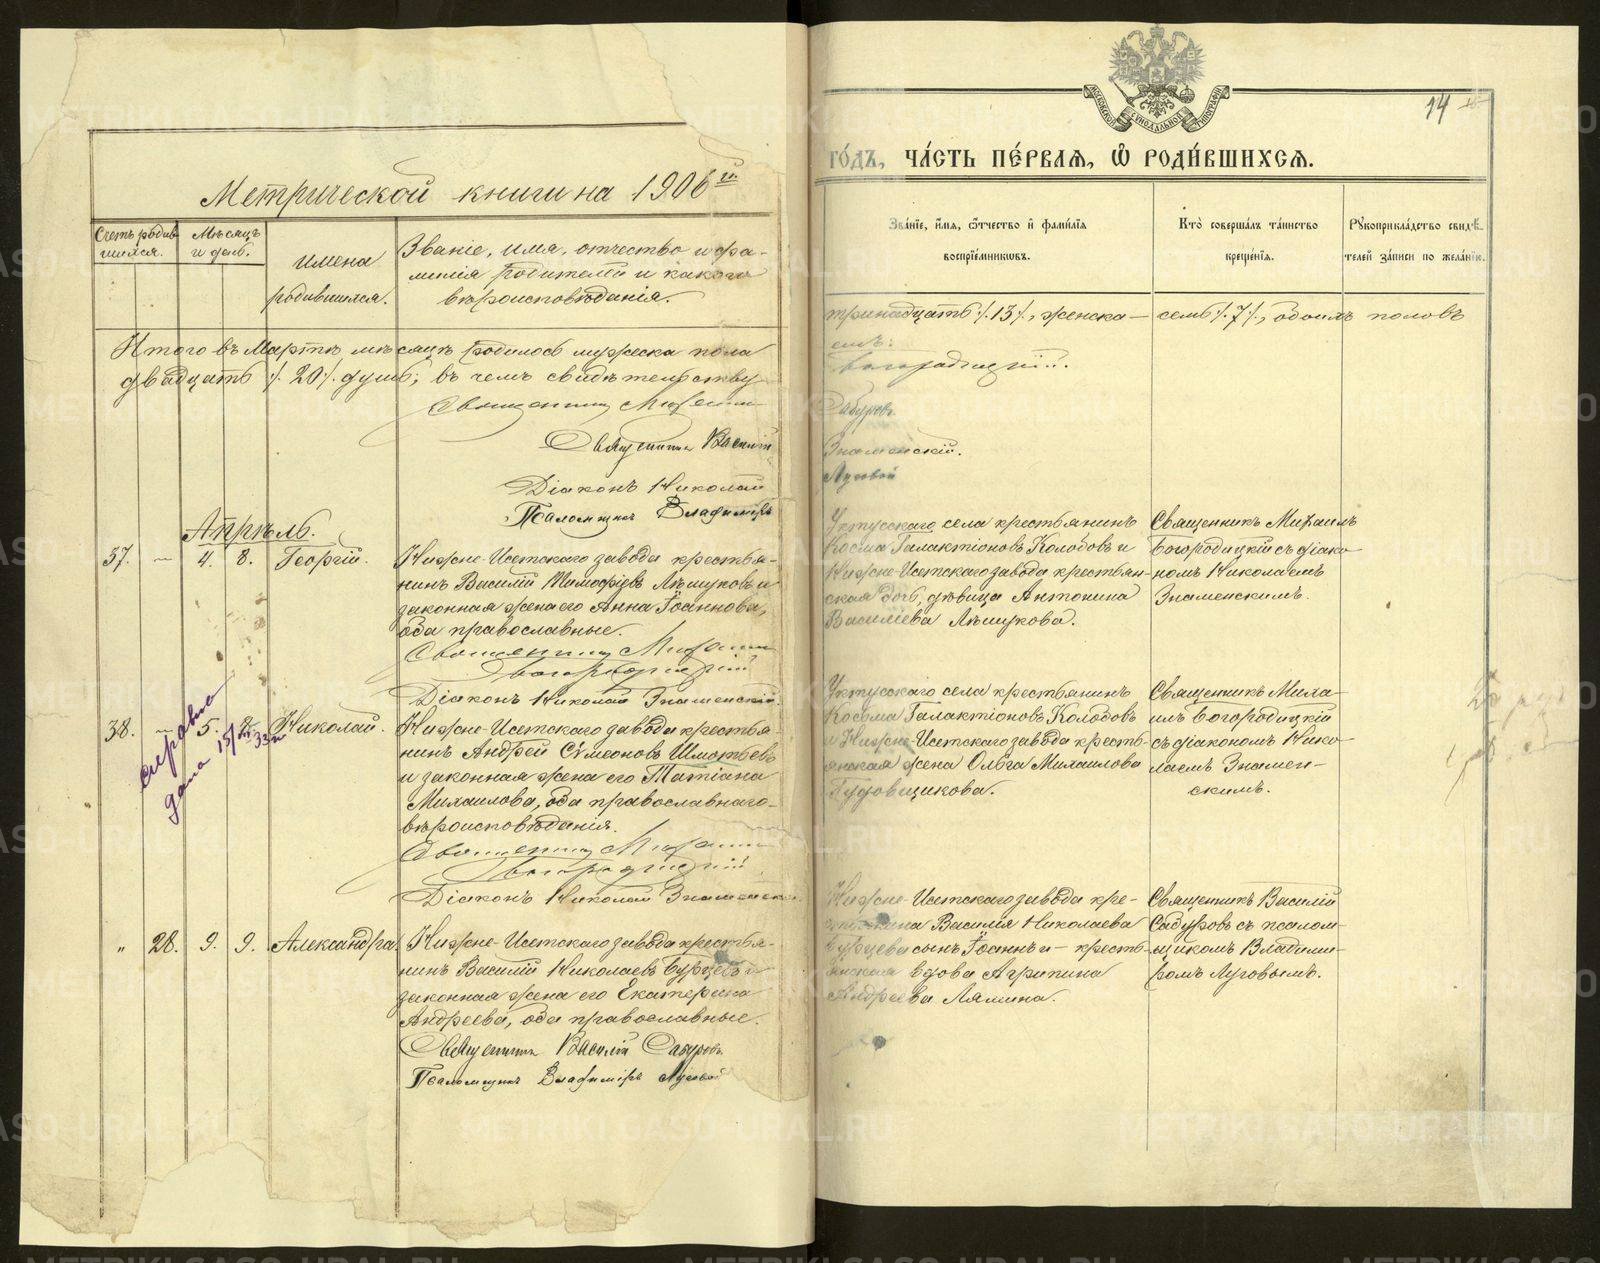 МОСКОВСКОЙ СѴНОДАЛЬНОЙ ТИПОГРАФІИ
14
Метрической книги на 1906 й
го́дъ, ча́сть пе́рвая, ѡ҆ роди́вшихся.
Счетъ родив-
шихся.
Мѣсяцъ
и день.
Имена
родившихся.
Званіе, имя, отчество и фа-
милія родителей и какого
вѣроисповѣданія.
Зва́нїе, и҆́мя, ѻ҆́тчество и҆ фами́лїя
воспрїе́мникѡвъ.
Кто̀ соверша́лъ та́инство
креще́нїя.
Рꙋкоприкла́дство свидѣ́-
телей за́писи по жела́нїю.
Итого въ Мартѣ мѣсяцѣ родилось мужеска пола
тринадцать /.13/., женска — семь /.7/., обоихъ половъ
двадцать /.20/. душъ; въ чемъ свидѣтельству-
емъ:
Священникъ Михаилъ
Богородицкій.
Священникъ Василій
Сабуровъ
Діаконъ Николай
Знаменскій.
Псаломщикъ Владиміръ
Луговой
Апрѣль.
37. — 4. 8. Георгій.
Нижне-Исетскаго завода крестья-
нинъ Василій Тимофѣевъ Лѣшуковъ и
законная жена его Анна Іоаннова,
оба православные.
Священникъ Михаилъ
Богородицкій
Діаконъ Николай Знаменскій.
Уктусскаго села крестьянинъ
Косма Галактіоновъ Колобовъ и
Нижне-Исетскаго завода крестьян-
ская дочь, дѣвица Антонина
Василіева Лѣшукова.
Священникъ Михаилъ
Богородицкій съ діако-
номъ Николаемъ
Знаменскимъ.
справка
дана
38. — 5. 8. Николай.
Нижне-Исетскаго завода крестья-
нинъ Андрей Сѵмеоновъ Шмотьевъ
и законная жена его Татіана
Михаилова, оба православнаго
вѣроисповѣданія.
Священникъ Михаилъ
Богородицкій
Діаконъ Николай Знаменскій
Уктусскаго села крестьянинъ
Косьма Галактіоновъ Колобовъ
и Нижне-Исетскаго завода кресть-
янская жена Ольга Михаилова
Пудовщикова.
Священникъ Миха-
илъ Богородицкій
съ діакономъ Нико-
лаемъ Знамен-
скимъ.
„ 28. 9. 9. Александра.
Нижне-Исетскаго завода крестья-
нинъ Василій Николаевъ Бурцевъ и
законная жена его Екатерина
Андреева, оба православные.
Священникъ Василій Сабуровъ
Псаломщикъ Владиміръ Луговой
Нижне-Исетскаго завода кре-
стьянина Василія Николаева
Бурцева сынъ Іоаннъ и кресть-
янская вдова Агрипина
Андреева Лямина.
Священникъ Василій
Сабуровъ съ псалом-
щикомъ Владими-
ромъ Луговымъ.
METRIKI.GASO-URAL.RU